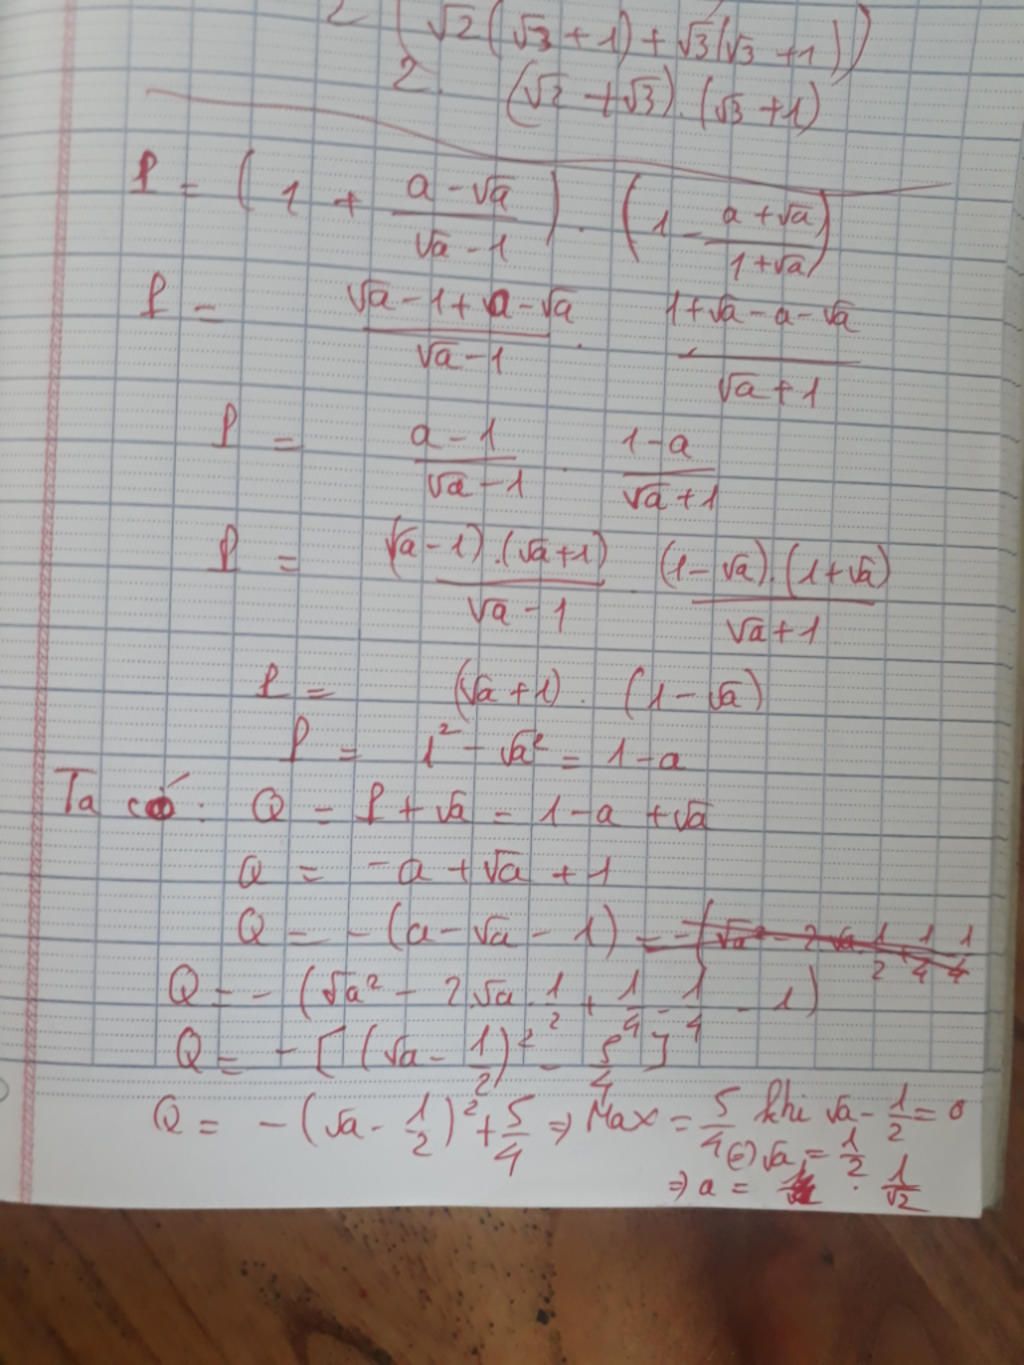 2 ( √2 (√3 + 1) + √3 (√3 + 1) )
2. (√2 + √3) . (√3 + 1)
P = ( 1 + (a - √a)/(√a - 1) ) . ( 1 - (a + √a)/(1 + √a) )
P = (√a - 1 + a - √a)/(√a - 1) . (1 + √a - a - √a)/(√a + 1)
P = (a - 1)/(√a - 1) . (1 - a)/(√a + 1)
P = ((√a - 1) . (√a + 1))/(√a - 1) . ((1 - √a) . (1 + √a))/(√a + 1)
P = (√a + 1) . (1 - √a)
P = 1² - √a² = 1 - a
Ta có : Q = P + √a = 1 - a + √a
Q = - a + √a + 1
Q = - (a - √a - 1)
Q = - (√a² - 2.√a . 1/2 + 1/4 - 1/4 - 1)
Q = - [ (√a - 1/2)² - 5/4 ]
Q = - (√a - 1/2)² + 5/4 ⇒ Max = 5/4 khi √a - 1/2 = 0
⇔ √a = 1/2
⇒ a = 1/√2